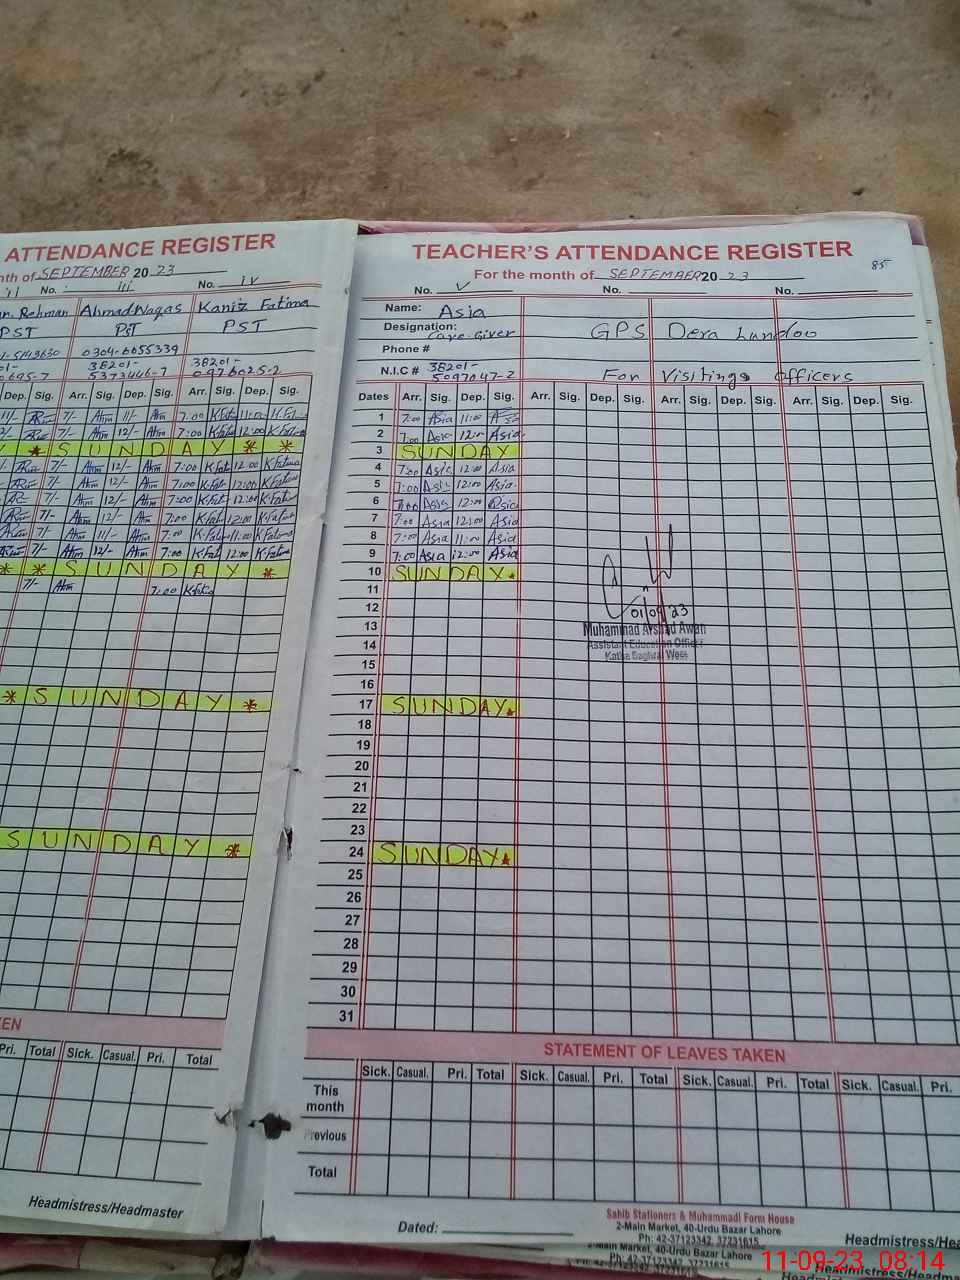 ATTENDANCE REGISTER
nth of SEPTEMBER 2023
No. iii No. iv
Rehman Ahmad Waqas Kaniz Fatima
PST PST PST
0304-6055339
38201- 38201-
5373446-7 0976025-2
Dep. Sig. Arr. Sig. Dep. Sig. Arr. Sig. Dep. Sig.
7/- Atm 11/- Atm 7:00 K.Fat 11:00
7/- Atm 12/- Atm 7:00 K.Fat 12:00
* SUNDAY * *
7/- Atm 12/- Atm 7:00 K.Fat 12:00 K.Fatima
7/- Atm 12/- Atm 7:00 K.Fat 12:00 K.Fatima
7/- Atm 12/- Atm 7:00 K.Fat 12:00
7/- Atm 12/- Atm 7:00 K.Fat 12:00
7/- Atm 11/- Atm 7:00 K.Fat 11:00 K.Fatima
7/- Atm 12/- Atm 7:00 K.Fat 12:00 K.Fatima
* * SUNDAY *
7/- Atm 7:00
* SUNDAY *
SUNDAY *
KEN
Pri. Total Sick. Casual. Pri. Total
Headmistress/Headmaster
TEACHER'S ATTENDANCE REGISTER
85
For the month of SEPTEMBER 2023
No. V No. No.
Name: Asia
Designation: Care-Giver GPS Dera Lundoo
Phone #
N.I.C # 38201-
5097047-2 For Visitings officers
Dates Arr. Sig. Dep. Sig. Arr. Sig. Dep. Sig. Arr. Sig. Dep. Sig. Arr. Sig. Dep. Sig.
1 7:00 Asia 11:00 Asia
2 7:00 Asia 12:00 Asia
3 SUNDAY
4 7:00 Asia 12:00 Asia
5 7:00 Asia 12:00 Asia
6 7:00 Asia 12:00 Asia
7 7:00 Asia 12:00 Asia
8 7:00 Asia 11:00 Asia
9 7:00 Asia 12:00 Asia
10 SUNDAY *
11
12
01/09/23
13
Muhammad Arshad Awan
14
Assistant Education Officer
Katha Saghral West
15
16
17 SUNDAY *
18
19
20
21
22
23
24 SUNDAY *
25
26
27
28
29
30
31
STATEMENT OF LEAVES TAKEN
Sick. Casual. Pri. Total Sick. Casual. Pri. Total Sick. Casual. Pri. Total Sick. Casual. Pri.
This
month
Previous
Total
Dated:
Sahib Stationers & Muhammadi Form House
2-Main Market, 40-Urdu Bazar Lahore
Ph: 42-37123342, 37231615
Headmistress/Head
2-Main Market, 40-Urdu Bazar Lahore
Ph: 42-37123342, 37231615
Headmistress/Headm
11-09-23 08:14